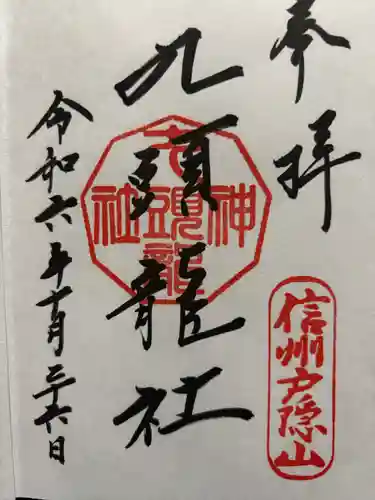 奉拝
信州戸隠山
九頭龍社
九頭龍神社
令和六年十月二十六日